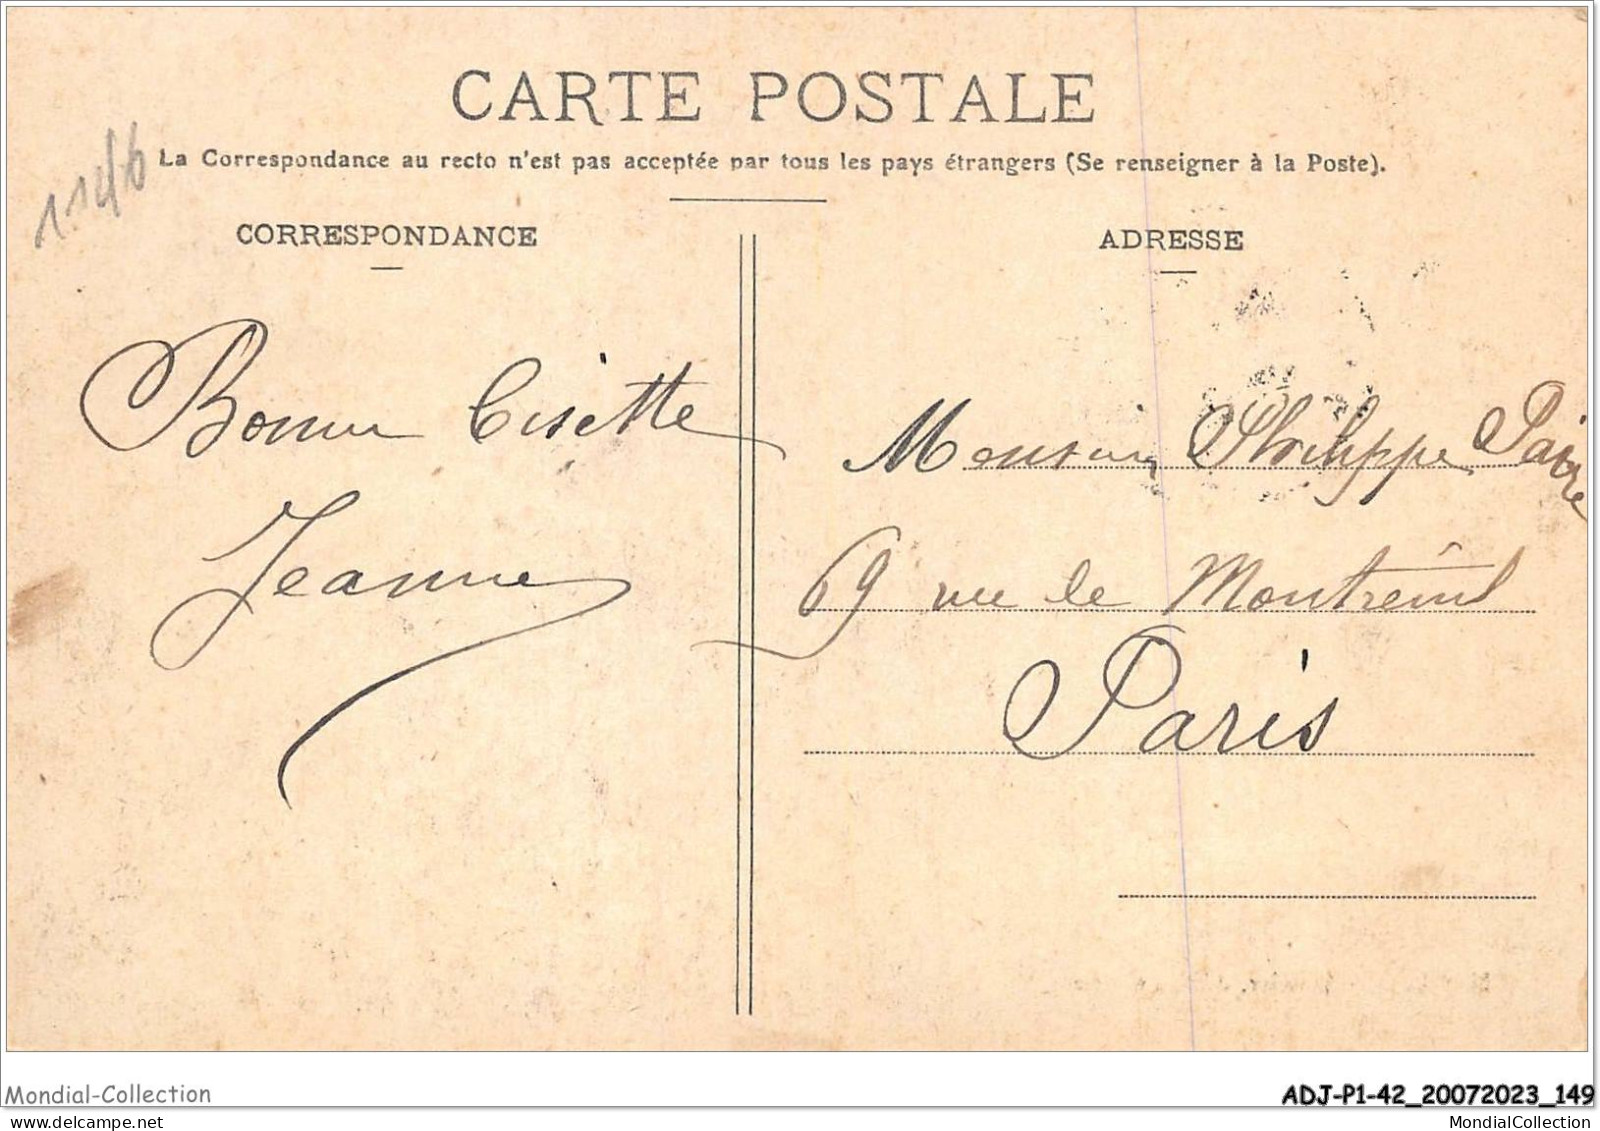 CARTE POSTALE
La Correspondance au recto n'est pas acceptée par tous les pays étrangers (Se renseigner à la Poste).
CORRESPONDANCE
Bonne
Jeanne
ADRESSE
Monsieur Philippe
69 rue de Montreuil
Paris
Mondial-Collection
ADJ-P1-42_20072023_149
delcampe.net
MondialCollection